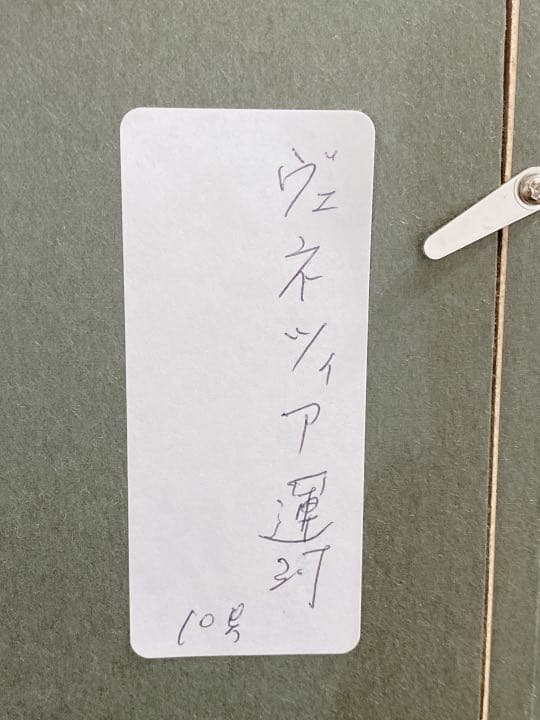 ヴェネツィア運河
10号